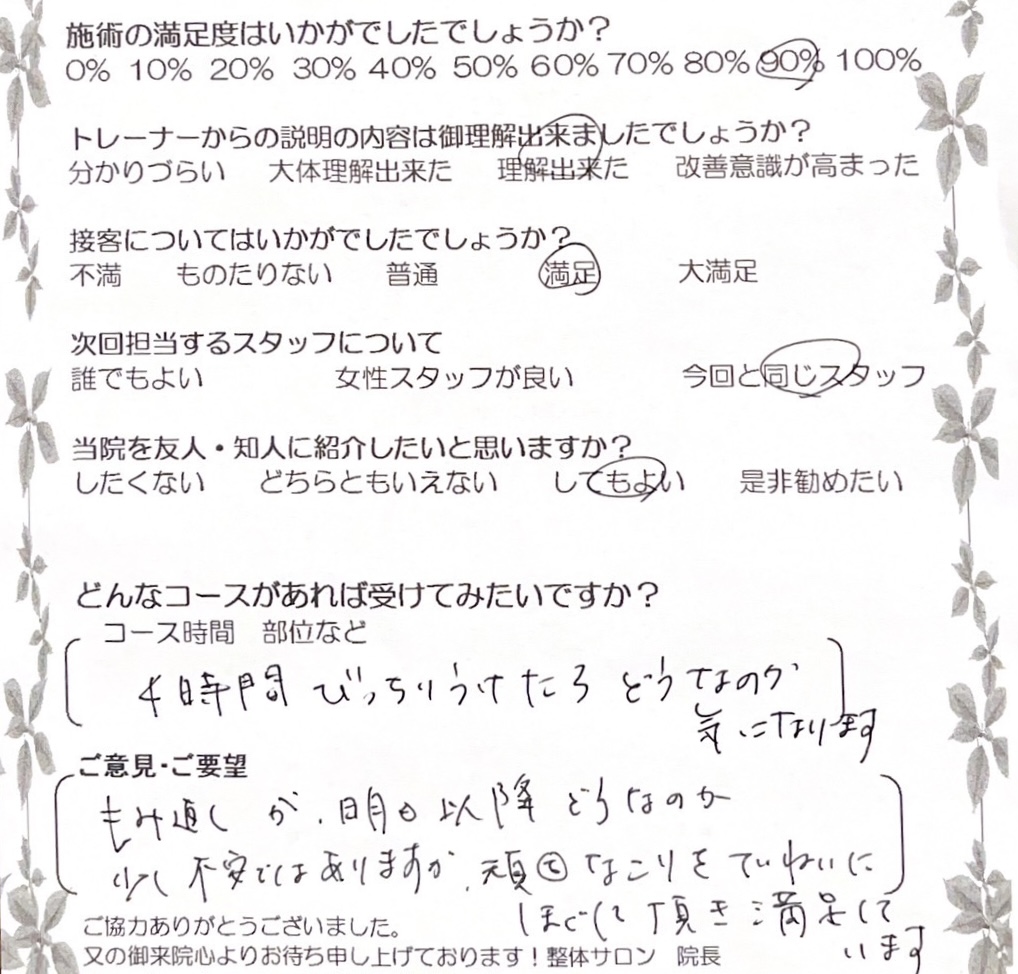 施術の満足度はいかがでしたでしょうか？
0% 10% 20% 30% 40% 50% 60% 70% 80% 90% 100%
トレーナーからの説明の内容は御理解出来ましたでしょうか？
分かりづらい 大体理解出来た 理解出来た 改善意識が高まった
接客についてはいかがでしたでしょうか？
不満 ものたりない 普通 満足 大満足
次回担当するスタッフについて
誰でもよい 女性スタッフが良い 今回と同じスタッフ
当院を友人・知人に紹介したいと思いますか？
したくない どちらともいえない してもよい 是非勧めたい
どんなコースがあれば受けてみたいですか？
コース時間 部位など
4時間 びっちりうけたら どうなのか
気になります
ご意見・ご要望
もみ返しが、明日以降どうなのか
少し不安ではありますが、頑固なこりをていねいに
ほぐして頂き満足して
います
ご協力ありがとうございました。
又の御来院心よりお待ち申し上げております！整体サロン 院長